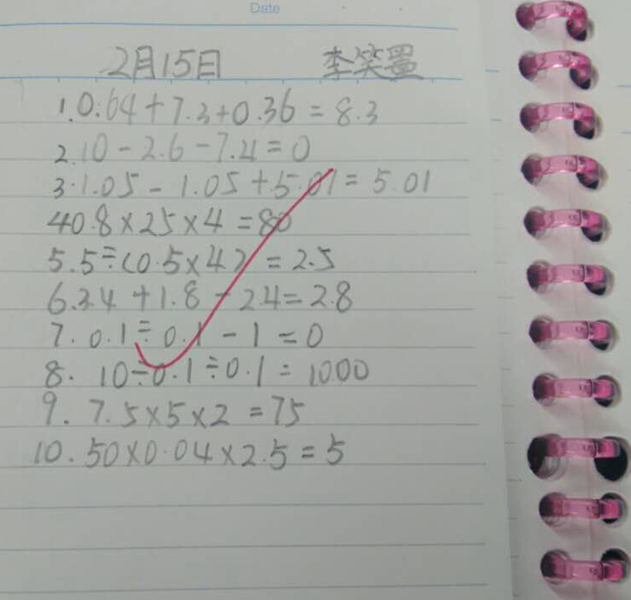 Date
2月15日 李笑墨
1.0.64+7.3+0.36=8.3
2.10-2.6-7.4=0
3.1.05-1.05+5.01=5.01
40.8×25×4=80
5.5÷(0.5×4)=2.5
6.3.4+1.8-2.4=2.8
7.0.1÷0.1-1=0
8.10÷0.1÷0.1=1000
9.7.5×5×2=75
10.50×0.04×2.5=5